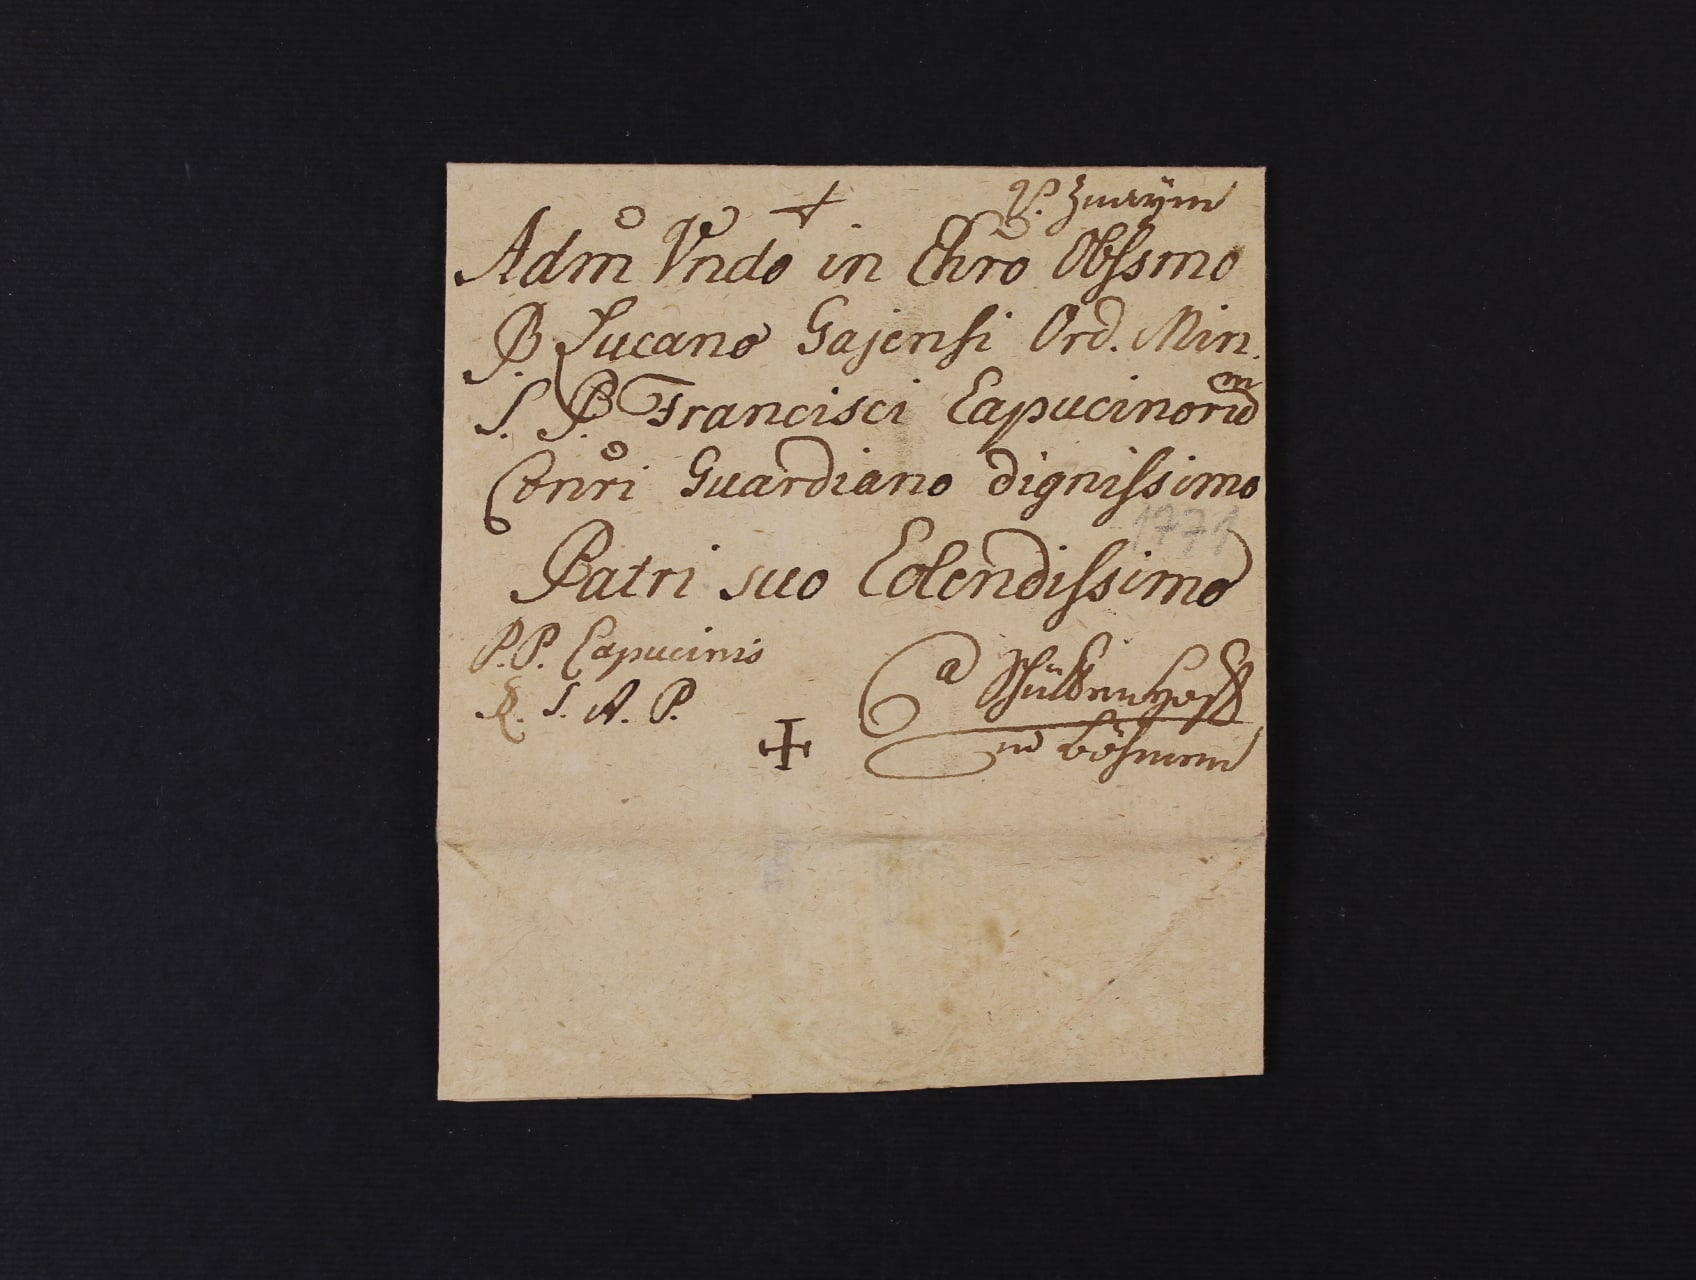 V. Znaym
Adm̊ Vndo in Chro Obssmo
P. Lucano Gajensi Ord. Min.
S. P. Francisci Capucinorum
Conv̊ri Guardiano dignissimo
1771
Patri suo Colendissimo
P.P. Capucinis
S. A. P.
a Schüttenhoff
in Böhmen